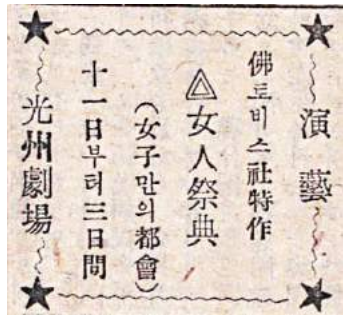 演藝
佛토비스社特作
△女人祭典
(女子만의都會)
十一日부터三日間
光州劇場